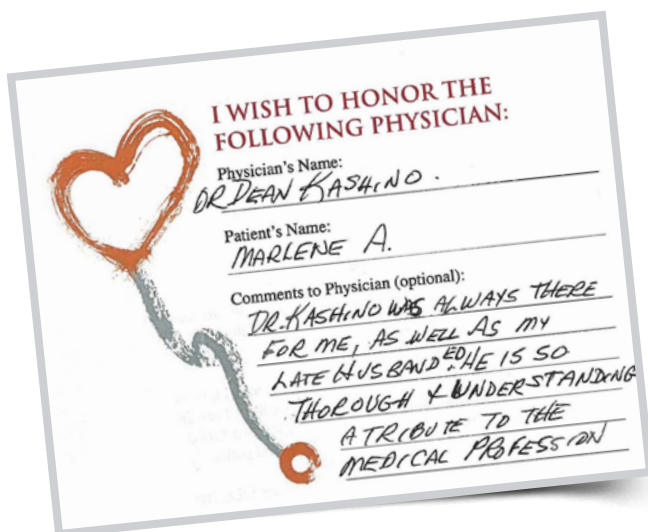 I WISH TO HONOR THE
FOLLOWING PHYSICIAN:
Physician's Name:
DR DEAN KASHINO.
Patient's Name:
MARLENE A.
Comments to Physician (optional):
DR. KASHINO WAS ALWAYS THERE
FOR ME, AS WELL AS MY
LATE HUSBAND ED. HE IS SO
THOROUGH & UNDERSTANDING
A TRIBUTE TO THE
MEDICAL PROFESSION